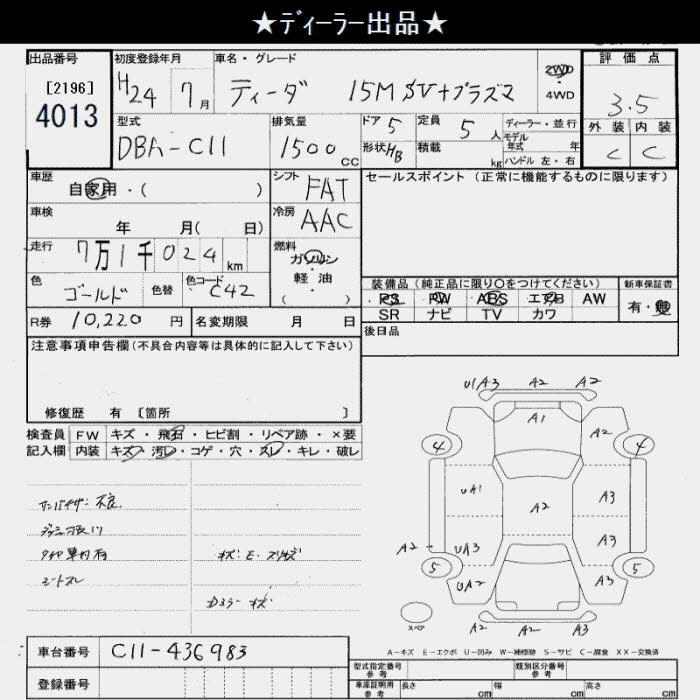 ★ディーラー出品★
出品番号 初度登録年月 車名・グレード 2WD 4WD 評価点
[2196] 4013 H24 7月 ティーダ 15M SV+プラズマ 3.5
型式 排気量 ドア 5 定員 5人 ディーラー・並行 外装 内装
DBA-C11 1500cc 形状 HB 積載 kg モデル年式 年 C C
ハンドル 左・右
車歴 自家用・( ) シフト FAT セールスポイント (正常に機能するものに限ります)
車検 年 月( 日) 冷房 AAC
走行 7万1千024km 燃料 ガソリン
色 ゴールド 色替 色コード C42 軽油 ( )
装備品 (純正品に限り〇をつけてください) 新車保証書
PS PW ABS エアB AW 有・無
SR ナビ TV カワ
R券 10,220円 名変期限 月 日 後日品
注意事項申告欄(不具合内容等は具体的に記入して下さい)
修復歴 有 [箇所 ]
検査員 FW キズ・飛石・ヒビ割・リペア跡・×要
記入欄 内装 キズ・汚レ・コゲ・穴・スレ・キレ・破レ
サンバイザー 不良
シートスレ
U1 A3 A2 A2
A1
4 A2 4
UA1 A2 A3
A2 UA3 A3
5 UA2 A3 5
スペア A2 A2 A3
A-キズ E-エクボ U-凹み W-補修跡 S-サビ C-腐食 XX-交換済
車台番号 C11-436983
登録番号
型式指定番号 参考 類別区分番号 参考
車庫証明用 参考 長さ cm 幅 cm 高さ cm